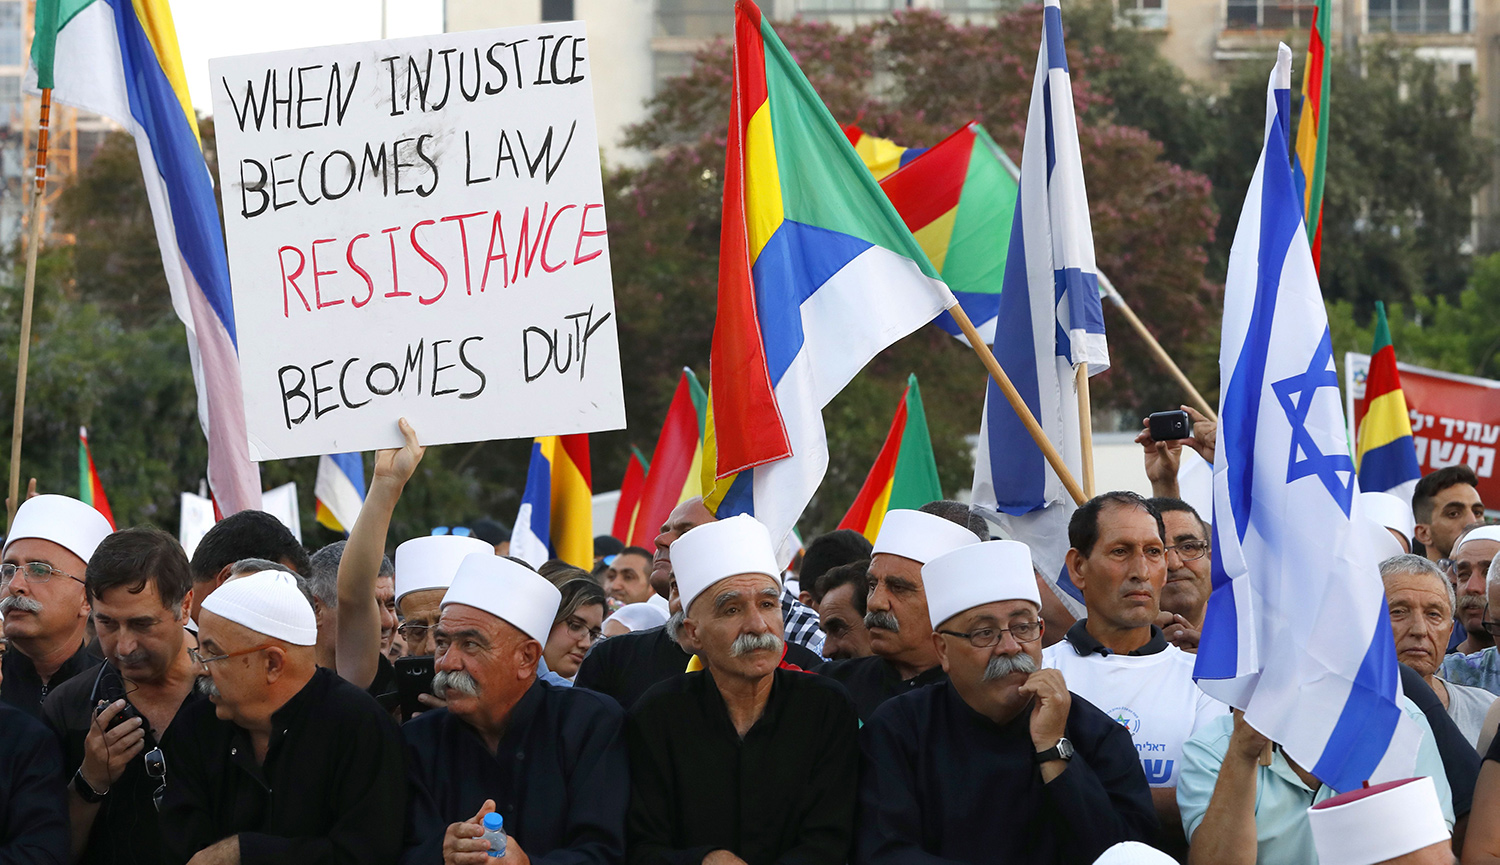 WHEN INJUSTICE
BECOMES LAW
RESISTANCE
BECOMES DUTY
עתיד